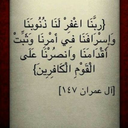 {رَبَّنَا اغْفِرْ لَنَا ذُنُوبَنَا
وَإِسْرَافَنَا فِي أَمْرِنَا وَثَبِّتْ
أَقْدَامَنَا وَانصُرْنَا عَلَى
الْقَوْمِ الْكَافِرِينَ}
[آل عمران ١٤٧]